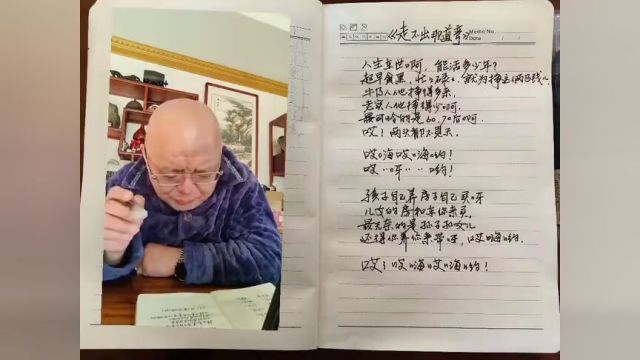 《走不出那道弯》
Memo No.
Date
人生在世啊 能活多少年?
起早贪黑,忙忙碌碌,就为挣这俩B钱儿
牛B人他挣得多亲,
老实人他挣得少啊呵.
最可怜的是60.70后啊.
哎!两头都不见天.
哎嗨哎嗨哟!
哎··呀··哟!
孩子自己养房子自己买呀
儿女的房和车你来买,
最无奈的是孙子孙女儿
还得你养你来带呀,哎哟嗨哟.
哎!哎嗨哎嗨哟!